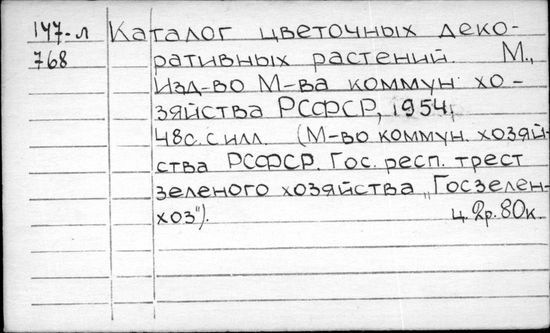 147-л Каталог цветочных деко-
768 ративных растений. М.,
Изд-во М-ва коммун. хо-
зяйства РСФСР, 1954,
48с. с илл. (М-во коммун. хозяй-
ства РСФСР. Гос. респ. трест
зеленого хозяйства „Госзелен-
хоз").
ц. 2р. 80к.